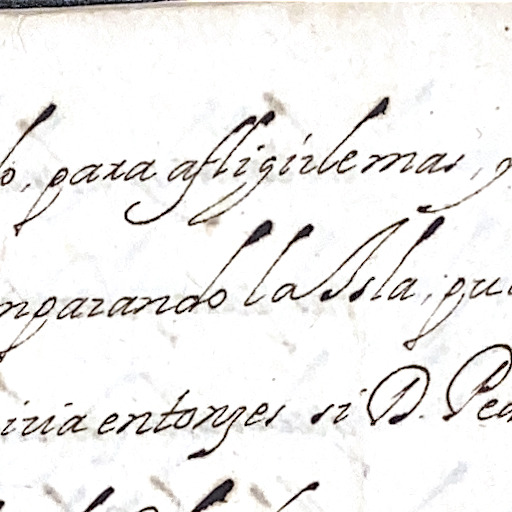 lo, para afligirle mas, 
mparando la Isla, que
iria entonzes si D. Ped